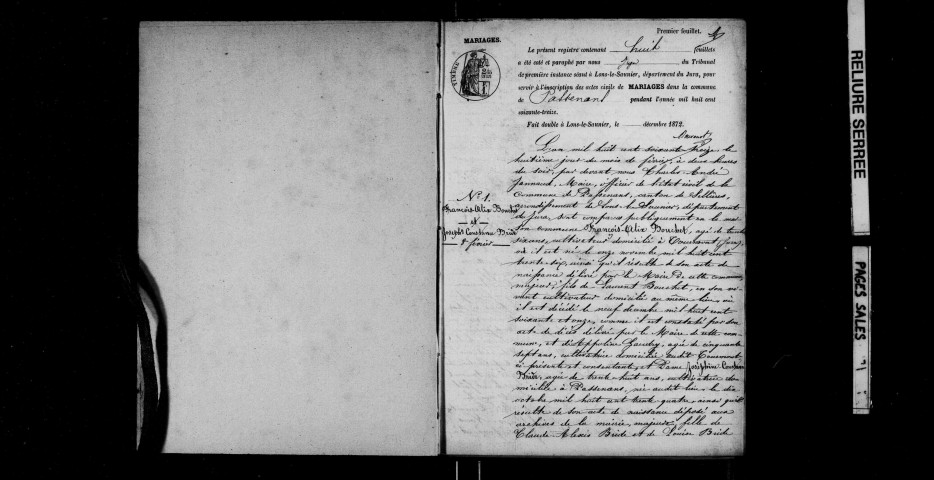 Premier feuillet.
MARIAGES.
Le présent registre contenant huit feuillets
a été coté et paraphé par nous Juge du Tribunal
de première instance séant à Lons-le-Saunier, département du Jura, pour
servir à l'inscription des actes civils de MARIAGES dans la commune
de Passenans pendant l'année mil huit cent
soixante-treize.
Fait double à Lons-le-Saunier, le décembre 1872.
TIMBRE
L'an mil huit cent soixante treize le
huitième jour du mois de février, à deux heures
du soir, par devant nous Charles André
Maire, officier de l'état civil de la
Commune de Passenans, canton de Sellières,
arrondissement de Lons-le-Saunier, département
du Jura, sont comparus publiquement en la mai
son commune François-Alix Bouchet, agé de trente
six ans, cultivateur domicilié à (Jura),
où il est né le onze novembre mil huit cent
trente-six, ainsi qu'il résulte de son acte de
naissance délivré par le Maire de cette commune,
majeur, fils de Laurent Bouchet, en son vi
vant cultivateur domicilié au même lieu où
il est décédé le neuf décembre mil huit cent
soixante et onze, comme il est constaté par son
acte de décès délivré par le Maire de cette com
mune, et d'Appoline Gaudry, agée de cinquante
sept ans, cultivatrice domiciliée audit
ci présente et consentante, et Dame Joséphine-Constance
Bride, agée de trente huit ans, cultivatrice do
miciliée à Passenans, née audit lieu le dix
octobre mil huit cent trente quatre, ainsi qu'il
résulte de son acte de naissance déposé aux
archives de la mairie, majeure, fille de
Claude Alexis Bride et de Louise Bride
N° 1.
François-Alix Bouchet
et
Joseph. Constance Bride
8 février
RELIURE SERREE
PAGES SALES